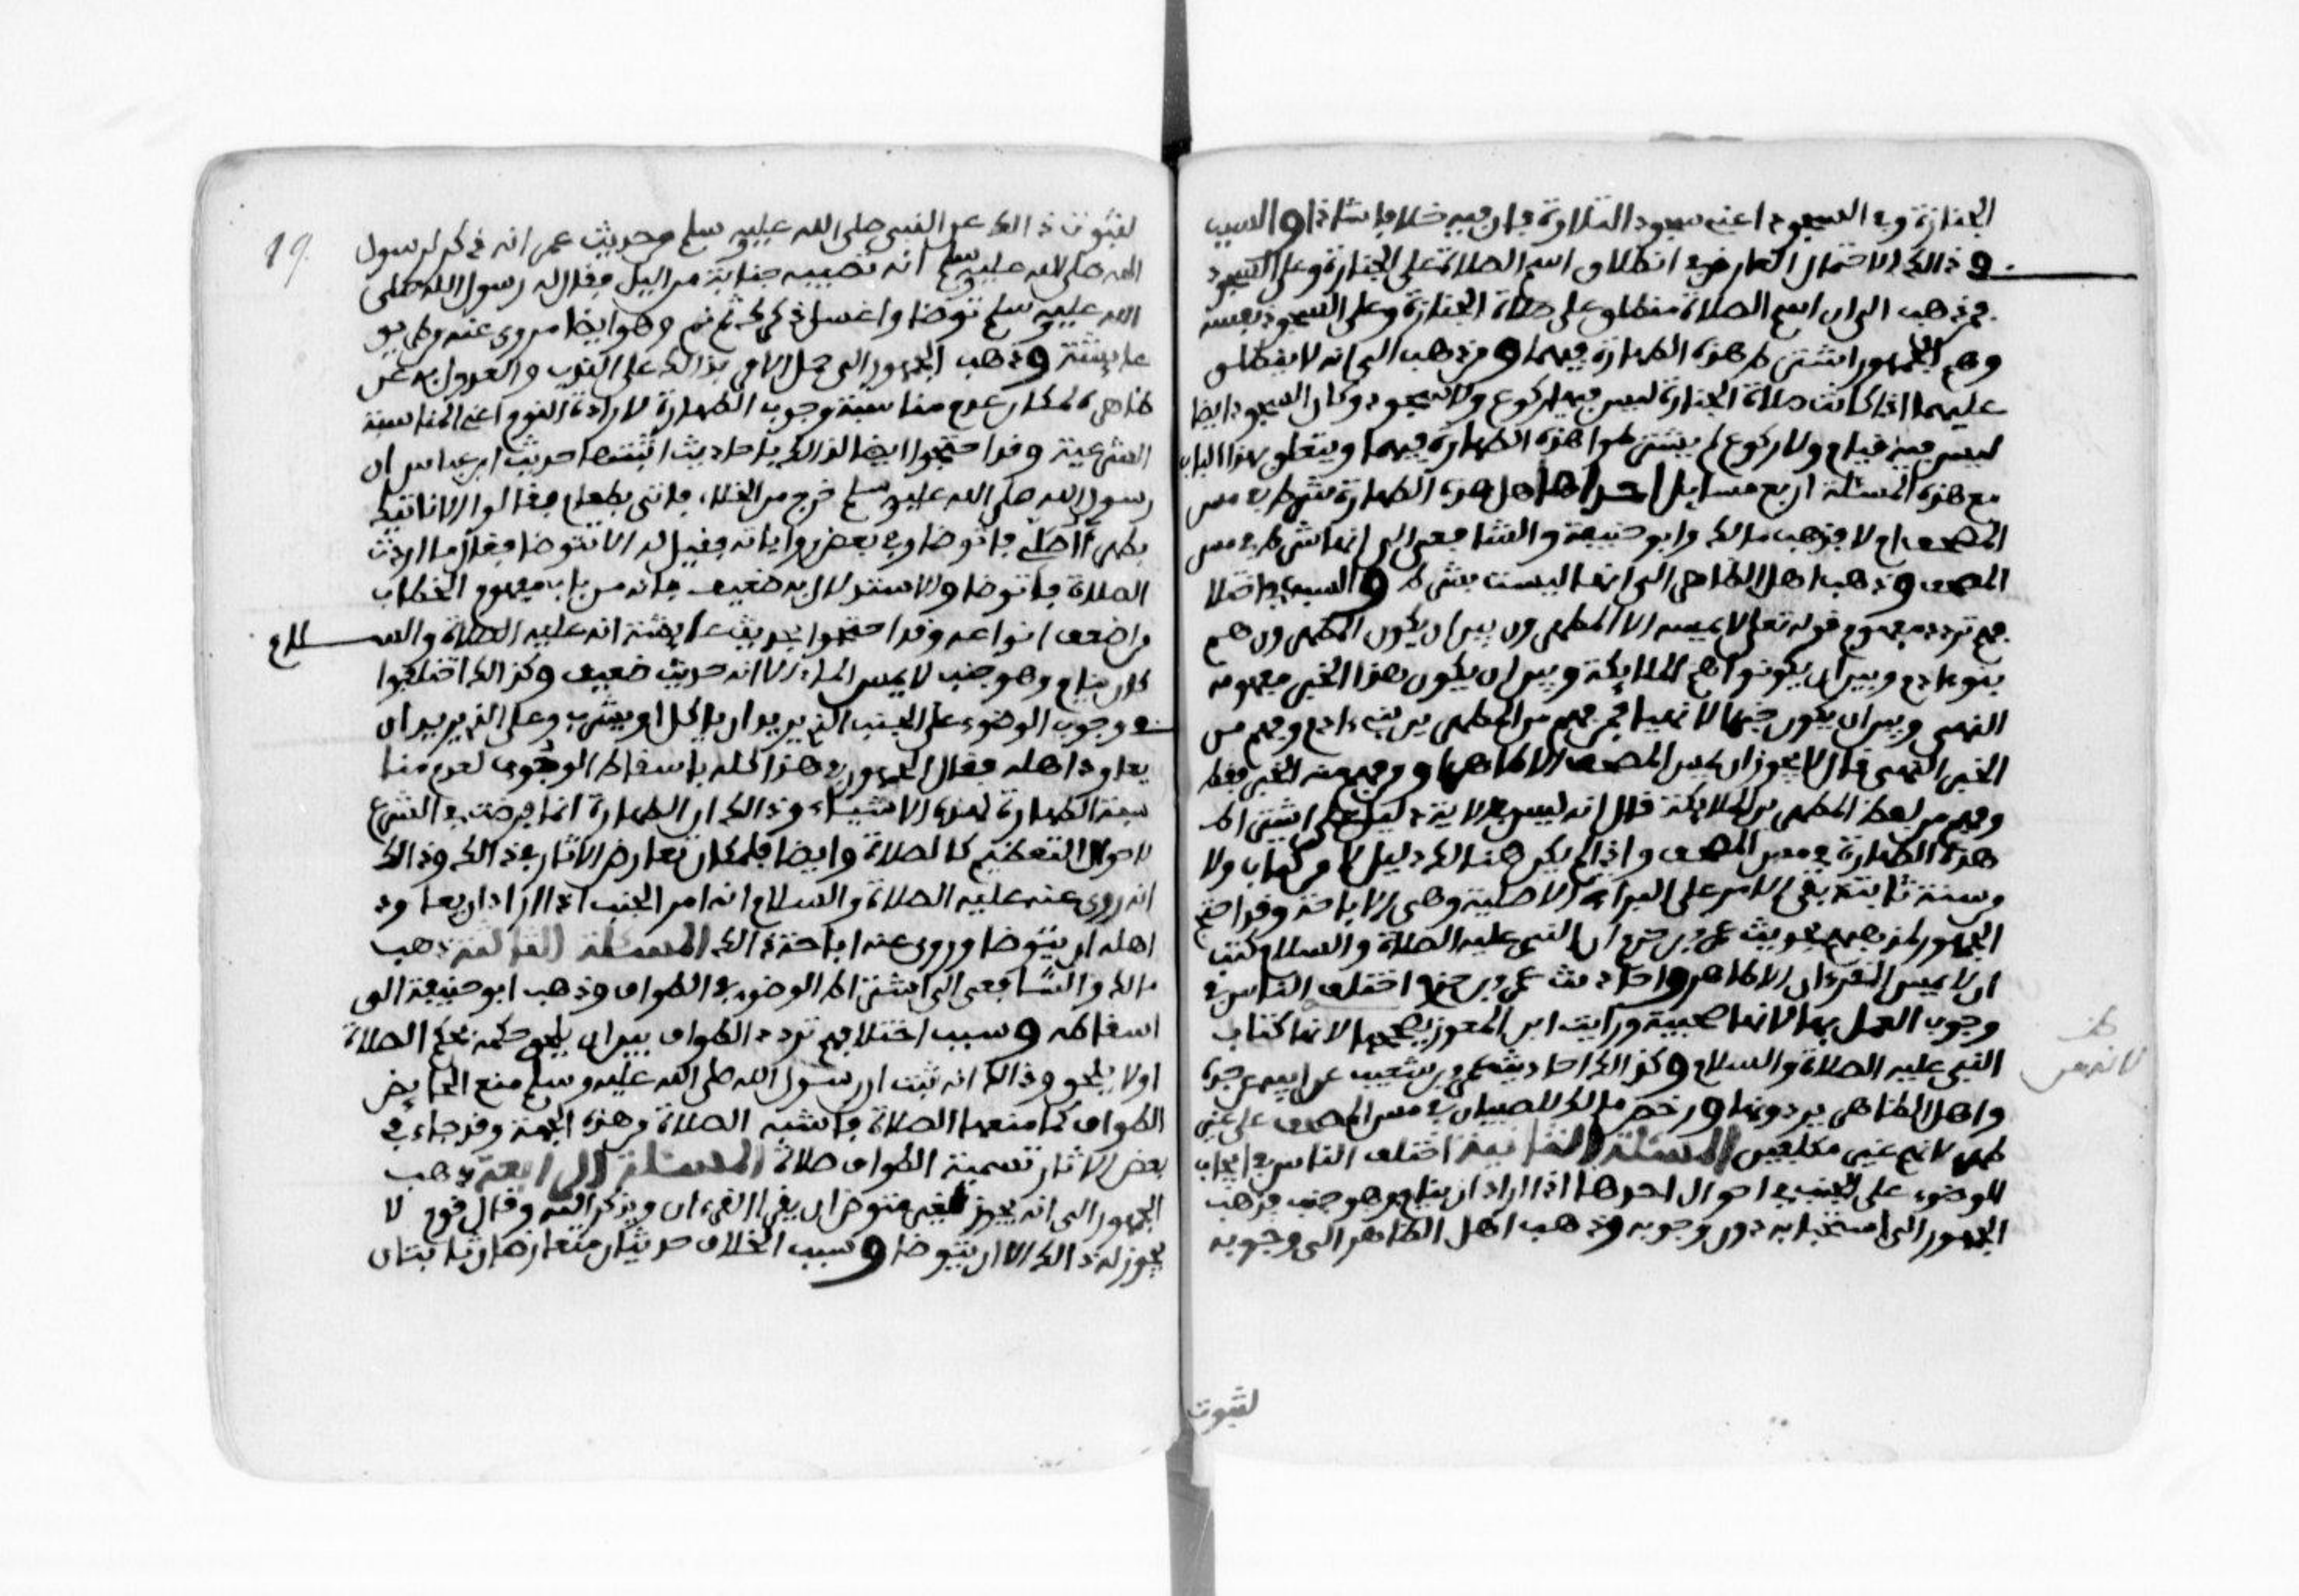 الجنازة وفي السجود اعني سجود التلاوة فان فيه خلافا شاذا والسبب
في ذالك الاحتمال العارض في انطلاق اسم الصلاة على الجنازة وعلى السجود
فمن ذهب الى ان اسم الصلاة منطلق على صلاة الجنازة وعلى السجود نفسه
وهم الجمهور اشترط هذه الطهارة فيهما ومن ذهب الى انه لا ينطلق
عليهما اذا كانت صلاة الجنازة ليس فيها ركوع ولا سجود وكان السجود ايضا
ليس فيه قيام ولا ركوع لم يشترطوا هذه الطهارة فيهما ويتعلق بهذا الباب
مع هذه المسئلة اربع مسايل احداها هل هذه الطهارة شرط في مس
المصحف ام لا فذهب مالك وابو حنيفة والشافعي الى انها شرط في مس
المصحف وذهب اهل الظاهر الى انها ليست بشرط والسبب في اختلا
فهم تردد مفهوم قوله تعالى لا يمسه الا المطهرون بين ان يكون المطهرون هم
بنو ءادم وبين ان يكونوا هم الملايكة وبين ان يكون هذا الخبر مفهومه
النهي وبين ان يكون خبرا لا نهيا فمن فهم من المطهرين بني ءادم وفهم من
الخبر النهي قال لا يجوز ان يمس المصحف الا طاهر ومن فهم منه الخبر فقط
وفهم من لفظ المطهرين الملايكة قال انه ليس في الاية دليل على اشتراط
هذه الطهارة في مس المصحف واذا لم يكن هنالك دليل لا من كتاب ولا
من سنة ثابتة بقي الامر على البراءة الاصلية وهي الاباحة وقد احتج
الجمهور لمذهبهم بحديث عمرو بن حزم ان النبي عليه الصلاة والسلام كتب
ان لا يمس القرءان الا طاهر واحاديث عمرو بن حزم اختلف الناس في
وجوب العمل بها لانها مصحفة ورايت ابن المفوز يصححها لانها كتاب
النبي عليه الصلاة والسلام وكذالك احاديث عمرو بن شعيب عن ابيه عن جده
واهل الظاهر يردونها ورخص مالك للصبيان في مس المصحف على غير
طهر لانهم غير مكلفين المسئلة الثانية اختلف الناس في ايجاب
الوضوء على الجنب في احوال احدها اذا اراد ان ينام وهو جنب فذهب
الجمهور الى استحبابه دون وجوبه وذهب اهل الظاهر الى وجوبه
لثبوت
19
لثبوت ذالك عن النبي صلى الله عليه وسلم من حديث عمر انه ذكر لرسول
الله صلى الله عليه وسلم انه تصيبه جنابة من اليل فقال له رسول الله صلى
الله عليه وسلم توضا واغسل ذكرك ثم نم وهو ايضا مروي عنه من طريق
عايشة وذهب الجمهور الى حمل الامر بذالك على الندب والعدول به عن
ظاهره لمكان عدم مناسبة وجوب الطهارة لارادة النوم اعني المناسبة
الشرعية وقد احتجوا ايضا لذالك باحاديث اثبتها حديث ابن عباس ان
رسول الله صلى الله عليه وسلم خرج من الخلاء فاتي بطعام فقالوا الا ناتيك
بطهر فقال أأصلي فاتوضا وفي بعض رواياته فقيل له الا تتوضا فقال ما اردت
الصلاة فاتوضا والاستدلال به ضعيف فانه من باب مفهوم الخطاب
من اضعف انواعه وقد احتجوا بحديث عايشة انه عليه الصلاة والسلام
كان ينام وهو جنب لا يمس الماء الا انه حديث ضعيف وكذالك اختلفوا
في وجوب الوضوء على الجنب الذي يريد ان ياكل او يشرب وعلى الذي يريد ان
يعاود اهله فقال الجمهور في هذا كله باسقاط الوجوب لعدم منا
سبة الطهارة لهذه الاشياء وذالك ان الطهارة انما فرضت في الشرع
لاحوال التعظيم كالصلاة وايضا فلمكان تعارض الاثار في ذالك وذالك
انه روي عنه عليه الصلاة والسلام انه امر الجنب اذا اراد ان يعاود
اهله ان يتوضا وروي عنه اباحة ذالك المسئلة الثالثة ذهب
مالك والشافعي الى اشتراط الوضوء في الطواف وذهب ابو حنيفة الى
اسقاطه وسبب اختلافهم تردد الطواف بين ان يلحق حكمه بحكم الصلاة
او لا يلحق وذالك انه ثبت ان رسول الله صلى الله عليه وسلم منع الحايض
الطواف كما منعها الصلاة فاشبه الصلاة من هذه الجهة وقد جاء في
بعض الاثار تسمية الطواف صلاة المسئلة الرابعة ذهب
الجمهور الى انه يجوز لغير متوضئ ان يقرا القرءان ويذكر الله وقال قوم لا
يجوز له ذالك الا ان يتوضا وسبب الخلاف حديثان متعارضان ثابتان